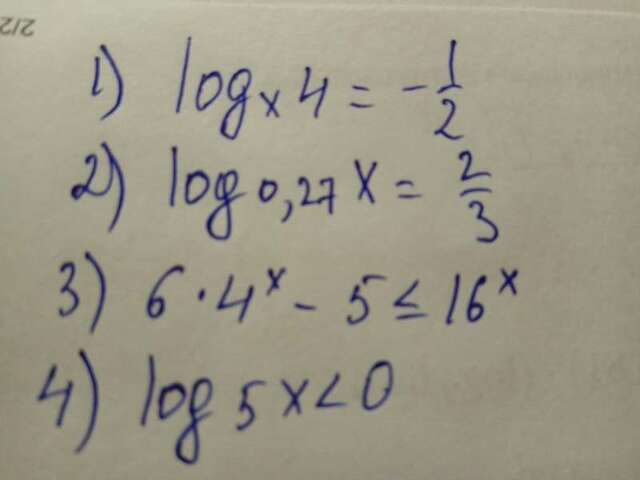 212
1) logₓ 4 = -1/2
2) log₀,₂₇ X = 2/3
3) 6 · 4ˣ - 5 ≤ 16ˣ
4) log₅ x < 0